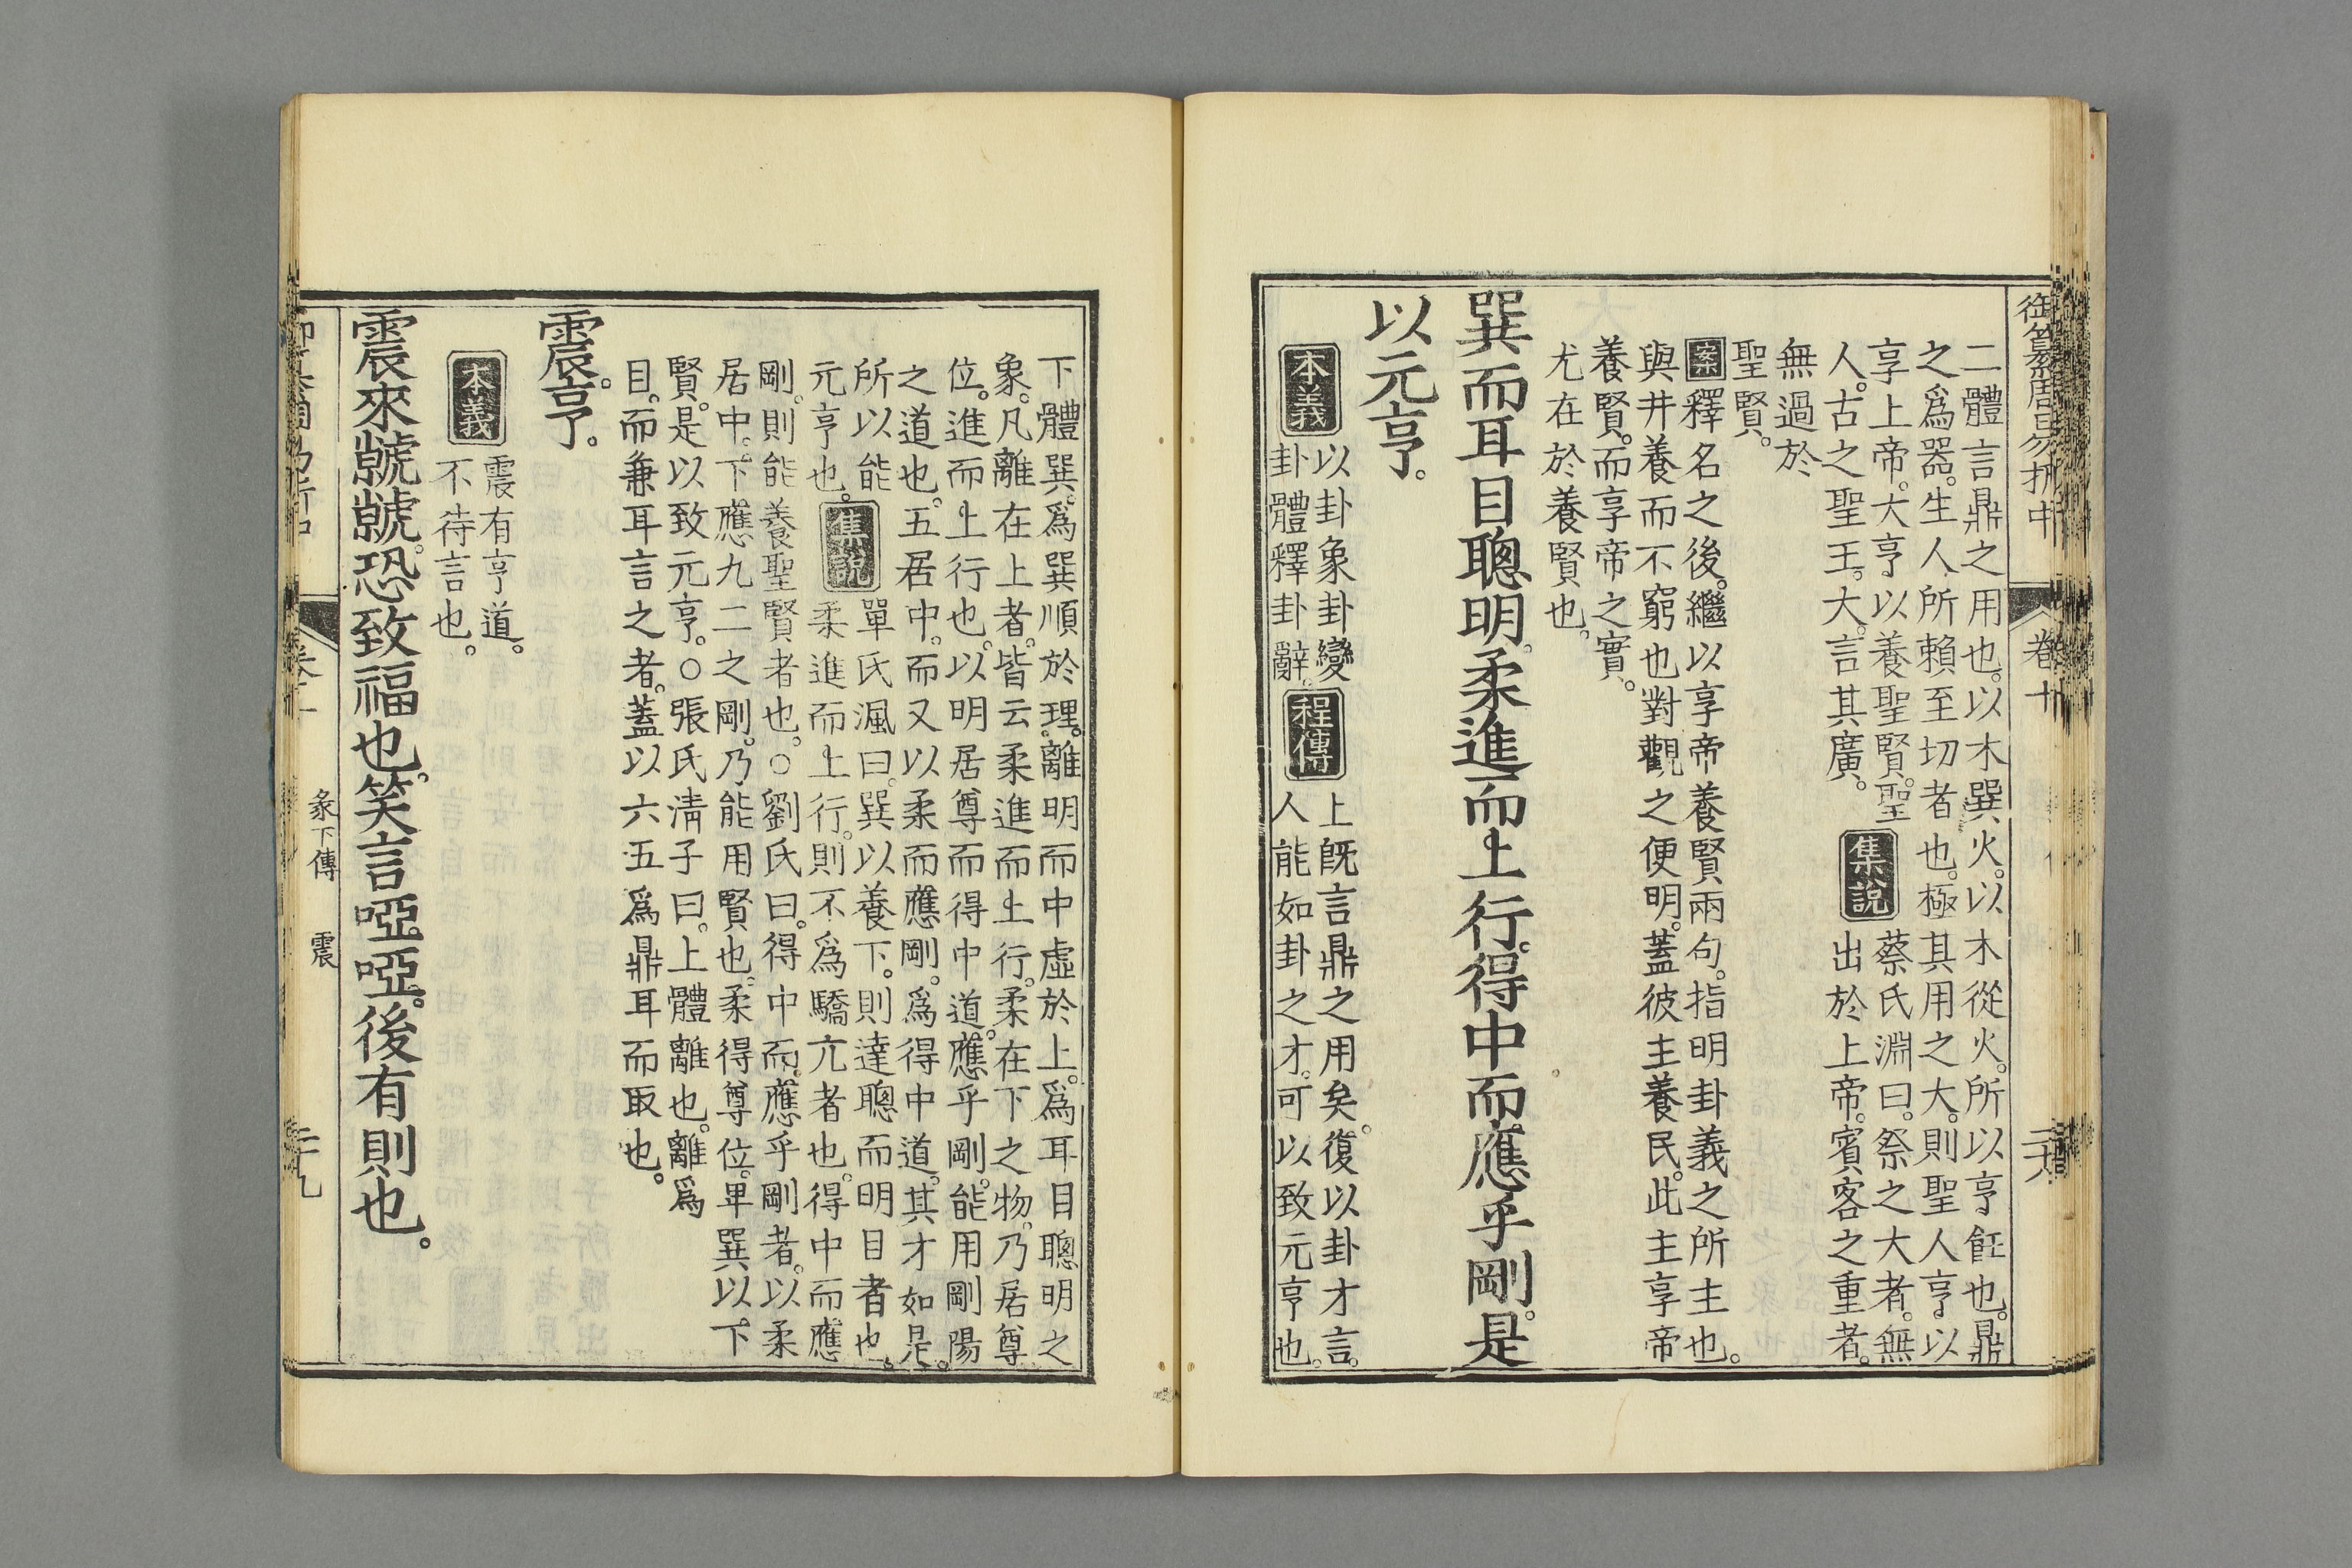 御纂周易折中 卷十 二十八
二體言鼎之用也。以木巽火。以木從火。所以亨飪也。鼎
之爲器。生人所賴至切者也。極其用之大。則聖人亨以
享上帝。大亨以養聖賢。聖
人。古之聖王。大。言其廣。
集說
蔡氏淵曰。祭之大者。無
出於上帝。賓客之重者。
無過於
聖賢。
案釋名之後。繼以享帝養賢兩句。指明卦義之所主也。
與井養而不窮也對觀之便明。蓋彼主養民。此主享帝
養賢。而享帝之實。
尤在於養賢也。
巽而耳目聰明。柔進而上行。得中而應乎剛。是
以元亨。
本義
以卦象卦變
卦體釋卦辭。
程傳
上既言鼎之用矣。復以卦才言。
人能如卦之才。可以致元亨也。
下體巽。爲巽順於理。離明而中虛於上。爲耳目聰明之
象。凡離在上者。皆云柔進而上行。柔在下之物。乃居尊
位。進而上行也。以明居尊而得中道。應乎剛。能用剛陽
之道也。五居中。而又以柔而應剛。爲得中道。其才如是。
所以能
元亨也。
集說
單氏渢曰。巽以養下。則達聰而明目者也。
柔進而上行。則不爲驕亢者也。得中而應
剛。則能養聖賢者也。○劉氏曰。得中而應乎剛者。以柔
居中。下應九二之剛。乃能用賢也。柔得尊位。卑巽以下
賢。是以致元亨。○張氏清子曰。上體離也。離爲
目。而兼耳言之者。蓋以六五爲鼎耳而取也。
震。亨。
本義
震有亨道。
不待言也。
震來虩虩。恐致福也。笑言啞啞。後有則也。
彖下傳 震